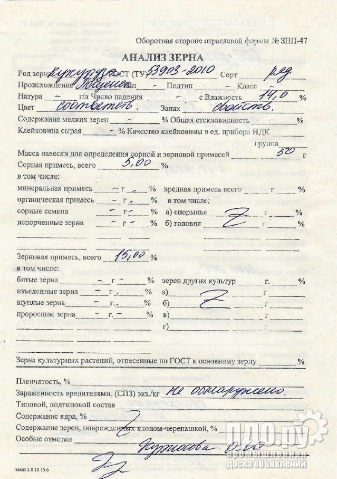 Оборотная сторона отраслевой формы № ЗПП-47
АНАЛИЗ ЗЕРНА
Род зерна кукуруза ГОСТ (ТУ) 53903-2010 Сорт ряд
Происхождение Тип - Подтип - Класс
Натура - г/л Число падения - с Влажность 14,0 %
Цвет соответств. Запах свойств.
Содержание мелких зерен - % Общая стекловидность - %
Клейковина сырая - % Качество клейковины в ед. прибора ИДК
группа
Масса навески для определения сорной и зерновой примесей 50 г
Сорная примесь, всего 5,00 %
в том числе:
минеральная примесь - г - % вредная примесь всего г %
органическая примесь - г - % в том числе:
сорные семена - г - % а) спорынья г %
испорченные зерна - г - % б) головня г %
Зерновая примесь, всего 15,00 %
в том числе:
битые зерна - г - % зерен других культур г. %
изъеденные зерна - г - % а) г %
щуплые зерна - г - % б) г %
проросшие зерна - г - % в) г %
г) г %
Зерна культурных растений, отнесенные по ГОСТ к основному зерну %
Пленчатость, %
Зараженность вредителями, (СПЗ) экз./кг не обнаружено.
Типовой, подтиповой состав
Содержание ядра, %
Содержание зерен, поврежденных клопом-черепашкой, %
Особые отметки
ПДО.ру
промышленная
доска объявлений